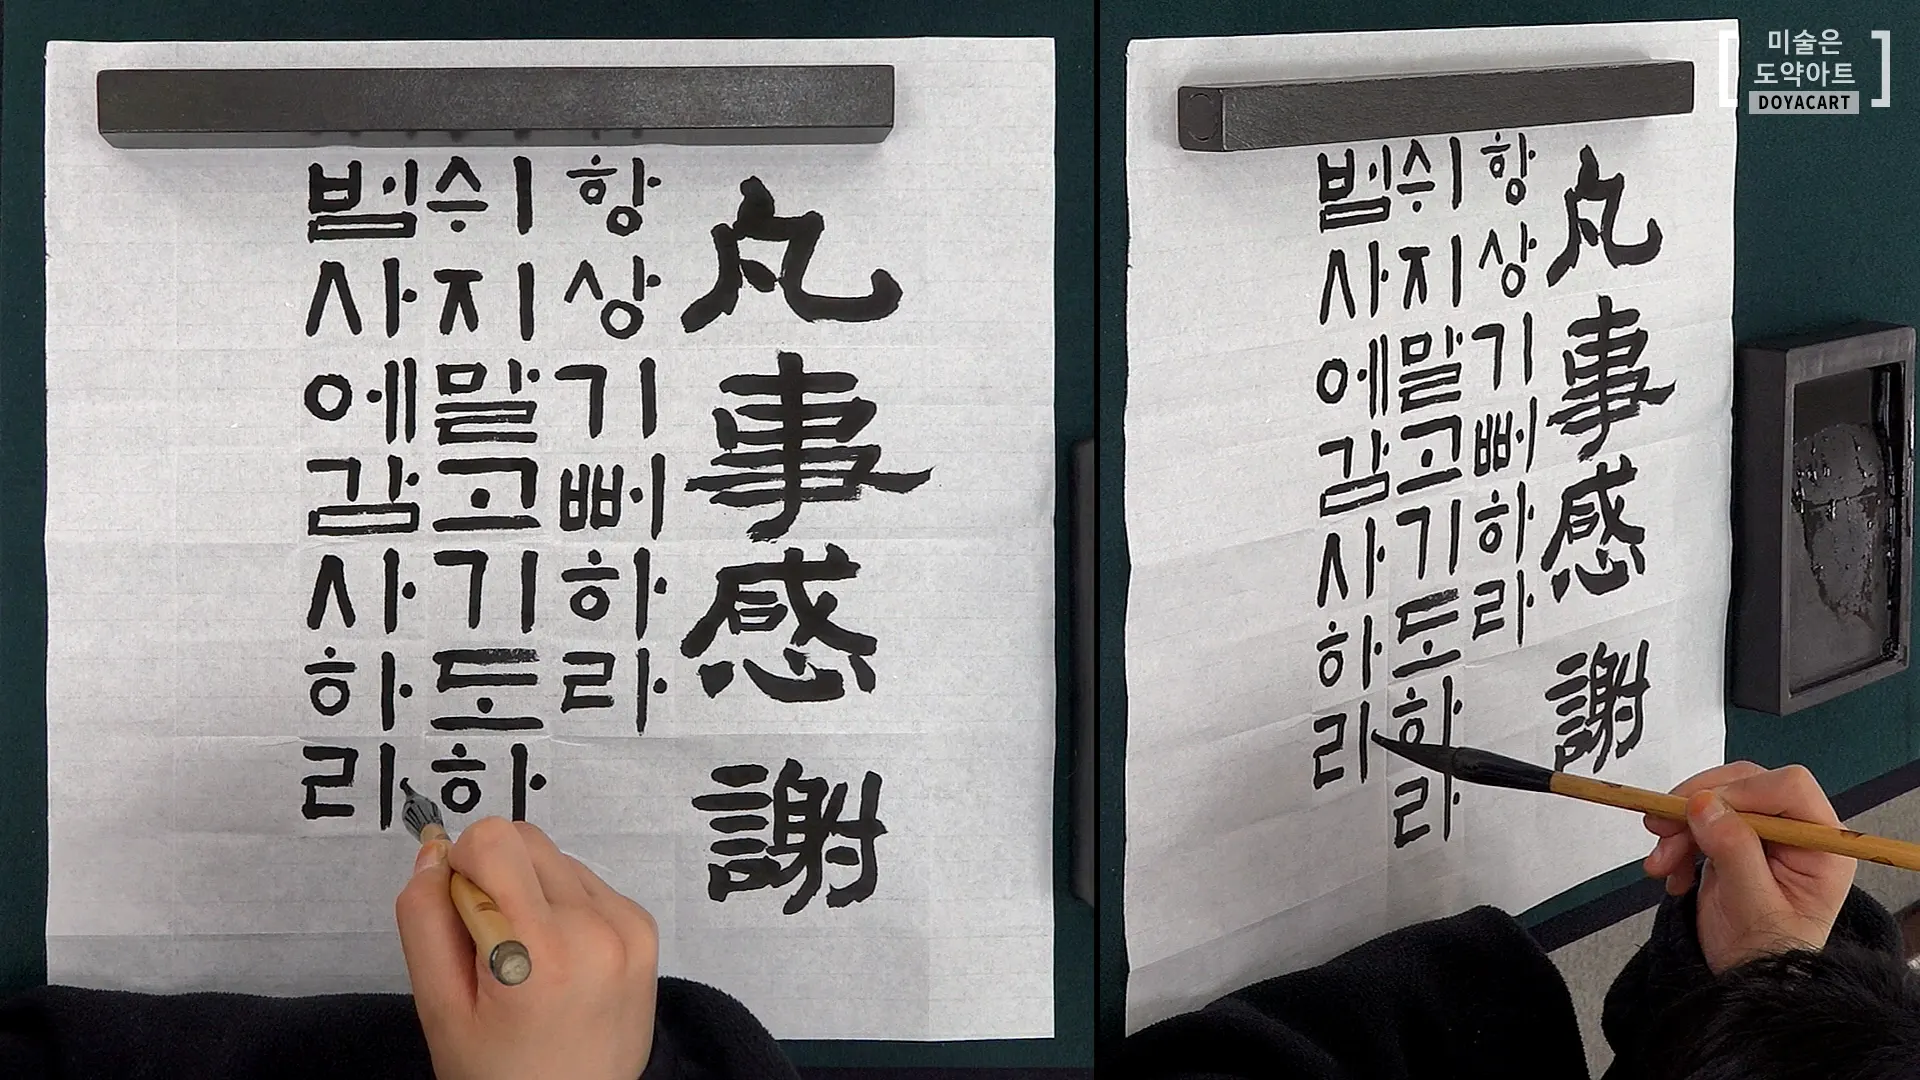 凡事感謝
항상기뻐하라
쉬지말고기도하
범사에감사하리
凡事感謝
항상기뻐하라
쉬지말고기도하라
범사에감사하리
미술은
도약아트
DOYACART